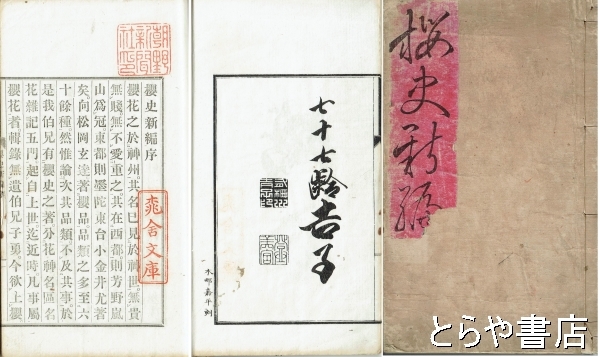 櫻史新編
七十七齡杏子
木邨嘉平刻
櫻史新編序
櫻花之於神州其名已見於神世無貴
無賤無不愛重之其在西都則芳野嵐
山爲冠東都則墨陀東台小金井尤著
矣向松岡玄達著櫻品品類之多至六
十餘種然惟論次其品類不及其事於
是我伯兄有櫻史之著分花神名區名
花雜記五門起自上世迄近時凡事屬
櫻花者輯錄無遺伯兄子勇今欲上櫻
潮野
新聞
社印
窕舍文庫
とらや書店